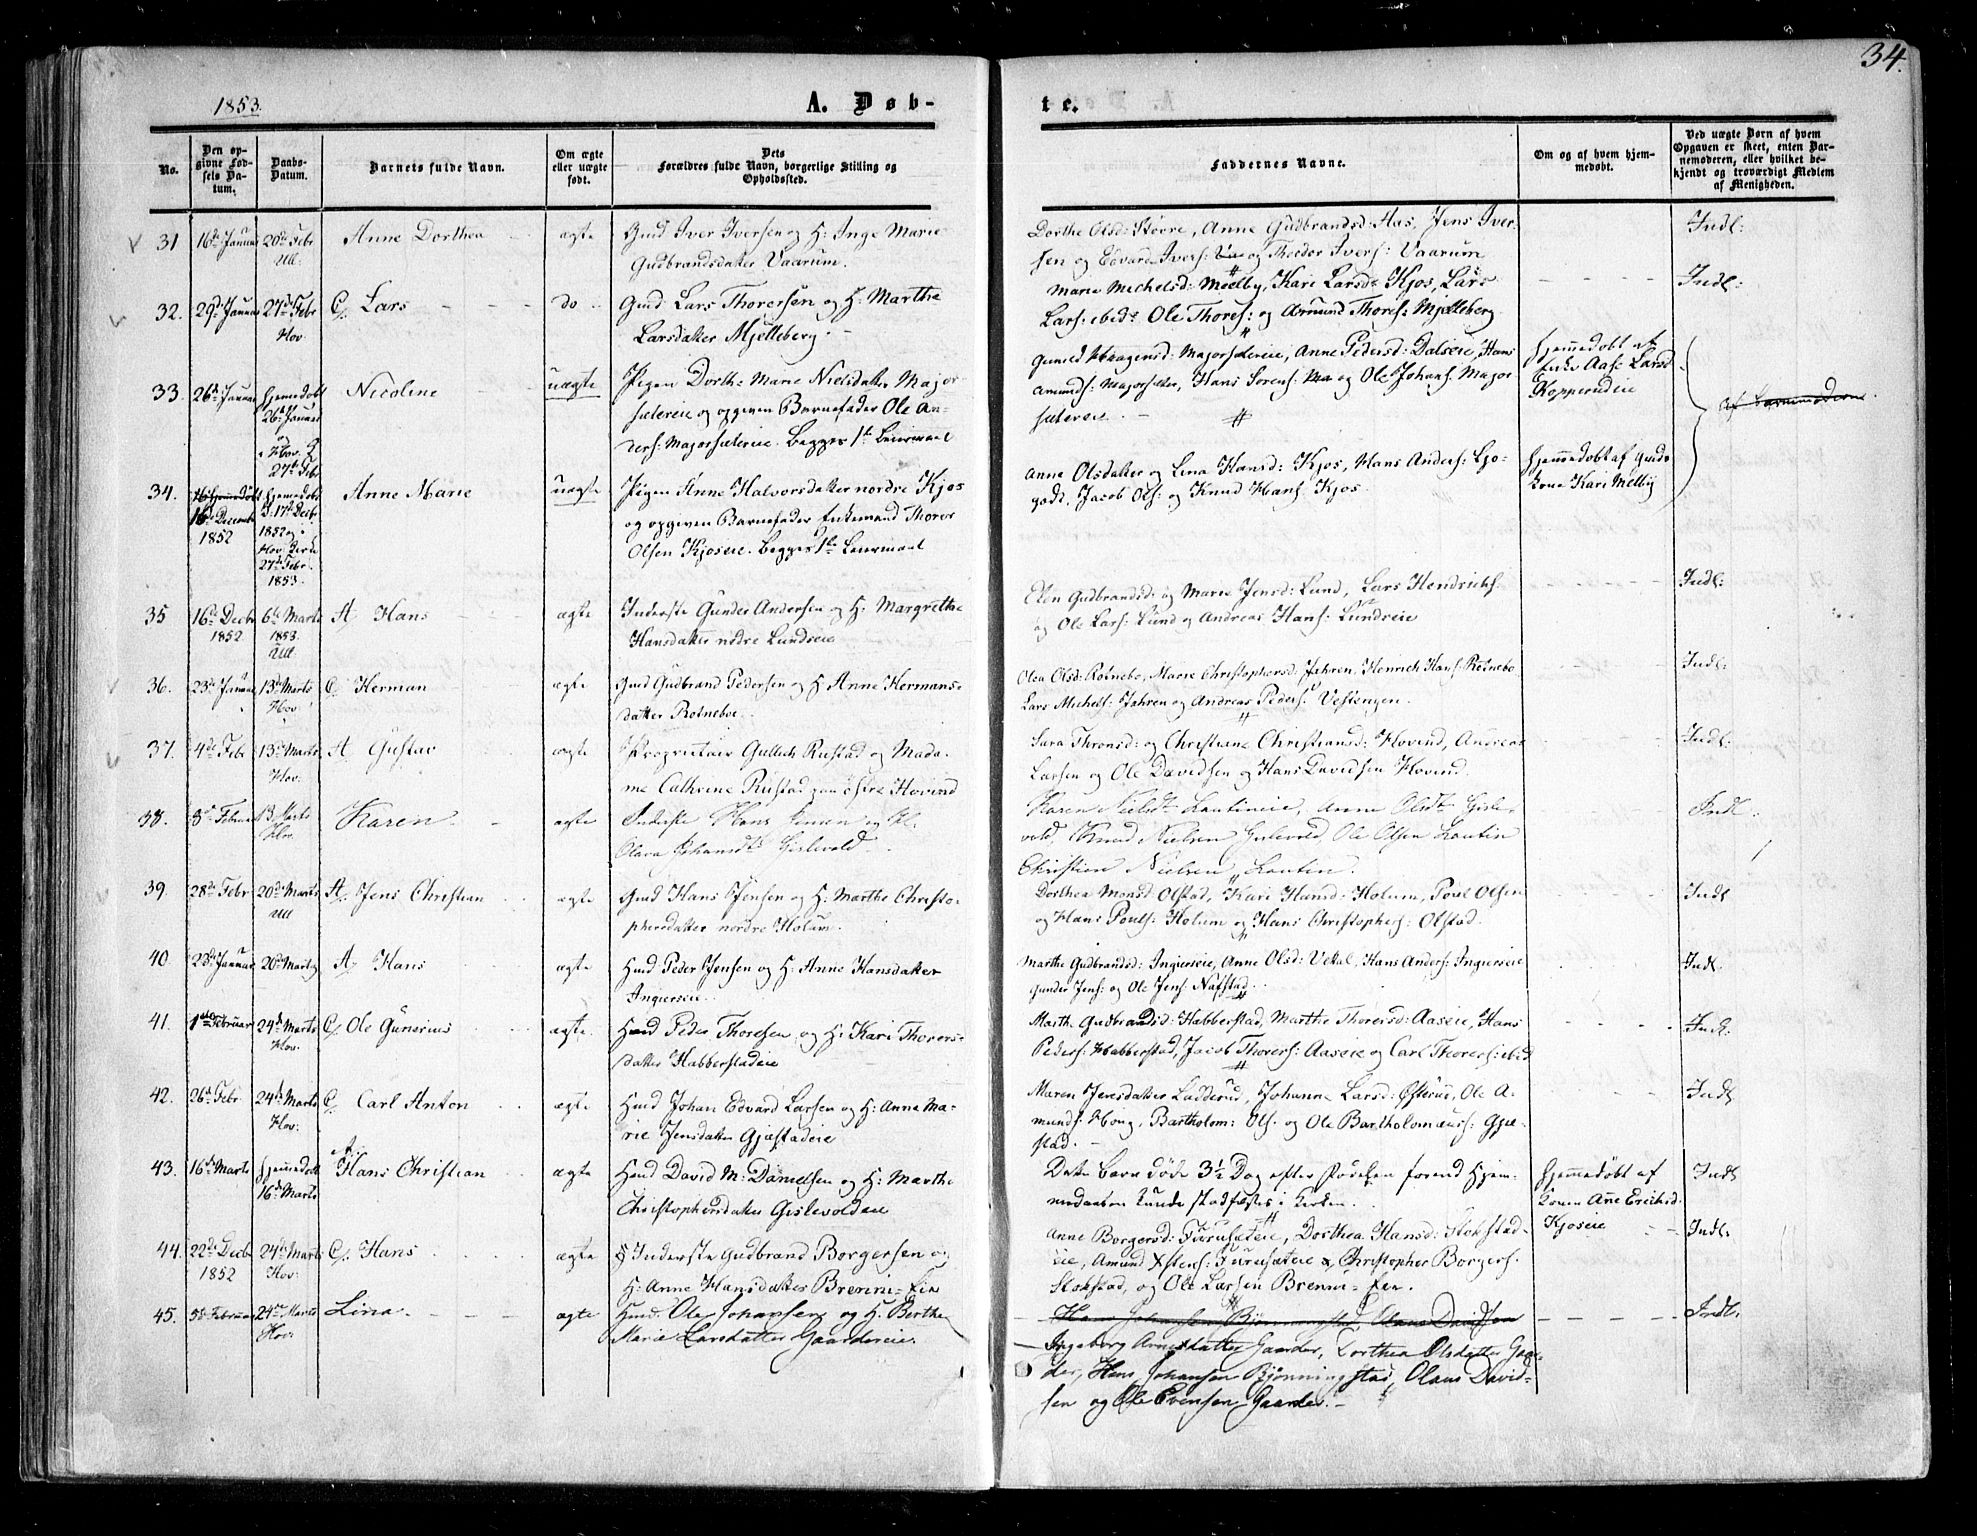 34.
1853.
A. Døb-
te.
No.
Den op-
givne Fød-
sels Da-
tum.
Daabs-
Datum.
Barnets fulde Navn.
Om ægte
eller uægte
født.
Dets
Forældres fulde Navn, borgerlige Stilling og
Opholdssted.
Faddernes Navne.
Om og af hvem hjem-
medøbt.
Ved uægte Børn af hvem
Opgaven er skeet, enten Bar-
nemoderen, eller hvilket be-
kjendt og troværdigt Medlem
af Menigheden.
31 16de Januar 20de Febr Anne Dorthea ægte Gmd Iver Iversen og H: Inge Marie
Ull: Gudbrandsdatter Vaarum.
Dorthe Olsd: Større, Anne Gudbrandsd: Aas, Jens Iver-
sen og Edvard Ivers: og Theodor Ivers: Vaarum
Indl:
32. 29de Januar 27de Febr Lars do Gmd Lars Thorersen og H: Marthe
Hov. Larsdatter Mjelleberg.
Marie Michelsd: Mælby, Kari Larsd: Kjos, Lars
Lars: ibid: Ole Thores: og Amund Thores: Mjelleberg
Indl:
33. 26de Januar Hjemmedøbt Nicoline uægte Pigen Dorth: Marie Nielsdatter Major-
26de Januar sætereie og opgiven Barnefader Ole An-
og i Hov. K
27de Febr
ders: Majorsætereie. Begges 1ste Leiermaal
Gunild Haagensd: Majorsætereie, Anne Pedersd: Dalseie, Hans
Amunds: Majorsæter, Hans Sørens: og Ole Johans: Major
sætereie.
Hjemmedøbt af
Enke Aase Larsd
Kopperudeie
af Barnemoderne.
34. 16de December Hjemmedøbt Anne Marie uægte Pigen Anne Halvorsdatter nordre Kjos
1852 d: 17de Decbr og opgiven Barnefader Enkemand Thorer
1852 og i Olsen Kjoseie. Begges 1ste Leiermaal
Hov Kirke
27de Febr.
1853.
Anne Olsdatter og Lina Hansd: Kjos, Hans Anders: Ljo-
godt. Jacob Ols: og Knud Hans: Kjos.
Hjemmedøbt af Gmds
kone Kari Mælby
35 16de Decbr 6te Marts A. Hans ægte Inderste Gunder Andersen og H: Margrethe
1852 1853. Hansdatter nedre Lundseie
Ull.
Elen Gudbrandsd: og Marie Jensd: Lund, Lars Hendrichs:
og Ole Lars: Lund og Andreas Hans: Lundseie
Indl:
36. 23de Januar 13de Marts C. Herman ægte Gmd Gudbrand Pedersen og H Anne Hermans-
Hov datter Rotneboe.
Olea Olsd: Rotnebo, Marie Christophersd: Jahren, Henrich Hans: Rotnebo
Lars Michels: Jahren og Andreas Peders: Vestengen.
Indl:
37. 4de Febr 13de Marts A Gustav ægte Proprietair Gullich Rustad og Mada-
Hov. me Cathrine Rustad paa østre Hovind
Sara Thronsd: og Christiane Christiansd: Hovind, Andreas
Larsen og Ole Davidsen og Hans Davidsen Hovind.
Indl:
38. 8de Februar 13 Marts Karen ægte Inderste Hans Simen og H.
Hov. Olava Johansdt: Gislevold
Karen Nielsdt: Lautineie, Anne Olsdt: Gisle-
vold, Knud Nielsen Gislevold, Ole Olsen Lautin
Christian Nielsen Lautin.
Indl.
39. 28de Febr 20de Marts A. Jens Christian ægte Gmd Hans Jensen og H: Marthe Christo-
Ull phersdatter nordre Holum.
Dorthea Monsd: Olstad, Kari Hansd: Holum, Poul Olsen
og Hans Pouls: Holum og Hans Christophers: Olstad.
Indl
40. 23de Januar 20de Marts A Hans ægte Hmd Peder Jensen og H: Anne Hansdatter
Ingierseie.
Marthe Gudbrandsd: Ingierseie, Anne Olsd: Vekal, Hans Anders: Ingierseie
Gunder Jens: og Ole Jens: Nafstad.
Indl.
41. 1ste Februar 24de Marts C. Ole Gunerius ægte Hmd Peder Thoresen og H: Kari Thorers-
Hov. datter Habberstadeie
Marthe Gudbrandsd: Habberstad, Marthe Thorersd: Aaseie, Hans
Peders: Habberstad, Jacob Thorers: Aaseie og Carl Thorers: ibid
Indl:
42. 26de Febr. 24de Marts C. Carl Anton ægte Hmd Johan Edvard Larsen og H: Anne Ma-
Hov: rie Jensdatter Gjæstadeie
Maren Jensdatter Ladderud, Johanne Larsd: Østerud, Ole A-
munds: Houg, Bartholom: Ols. og Ole Bartholomæuss: Gjæ-
stad.
Indl
43. 16de Marts Hjemmedøbt A. Hans Christian ægte Hmd David M: Danielsen og H: Marthe
16de Marts Christophersdatter Gislevoldeie
Dette Barn døde 3½ Dag efter Fødselen forend Hjem-
medaaben kunde stadfæstes i Kirken.
Hjemmedøbt af
Konen Ane Erichsd.
Kjoseie
Indl
44. 22de Decbr 24de Marts C. Hans ægte Inderste Gudbrand Borgersen og
1852 Hov: H: Anne Hansdatter Brenni-Eie
Anne Borgersd: Furusæteie, Dorthea Hansd: Stokstad-
eie, Amund Østens: Furusæteie, Christopher Borgers.
Stokstad, og Ole Larsen Brenni-Eie.
Indl:
45. 5de Februar 24de Marts Lina ægte Hmd. Ole Johansen og H. Berthe
Hov: Marie Larsdatter Gaardereie.
Hans Johansen Bjønningstad, Olaus Davidsen
Ingeborg Arnesdatter Gaarder, Dorthea Olsdatter Gaar-
der, Hans Johansen Bjønningstad, Olaus David-
sen og Ole Evensen Gaarder.
Indl: